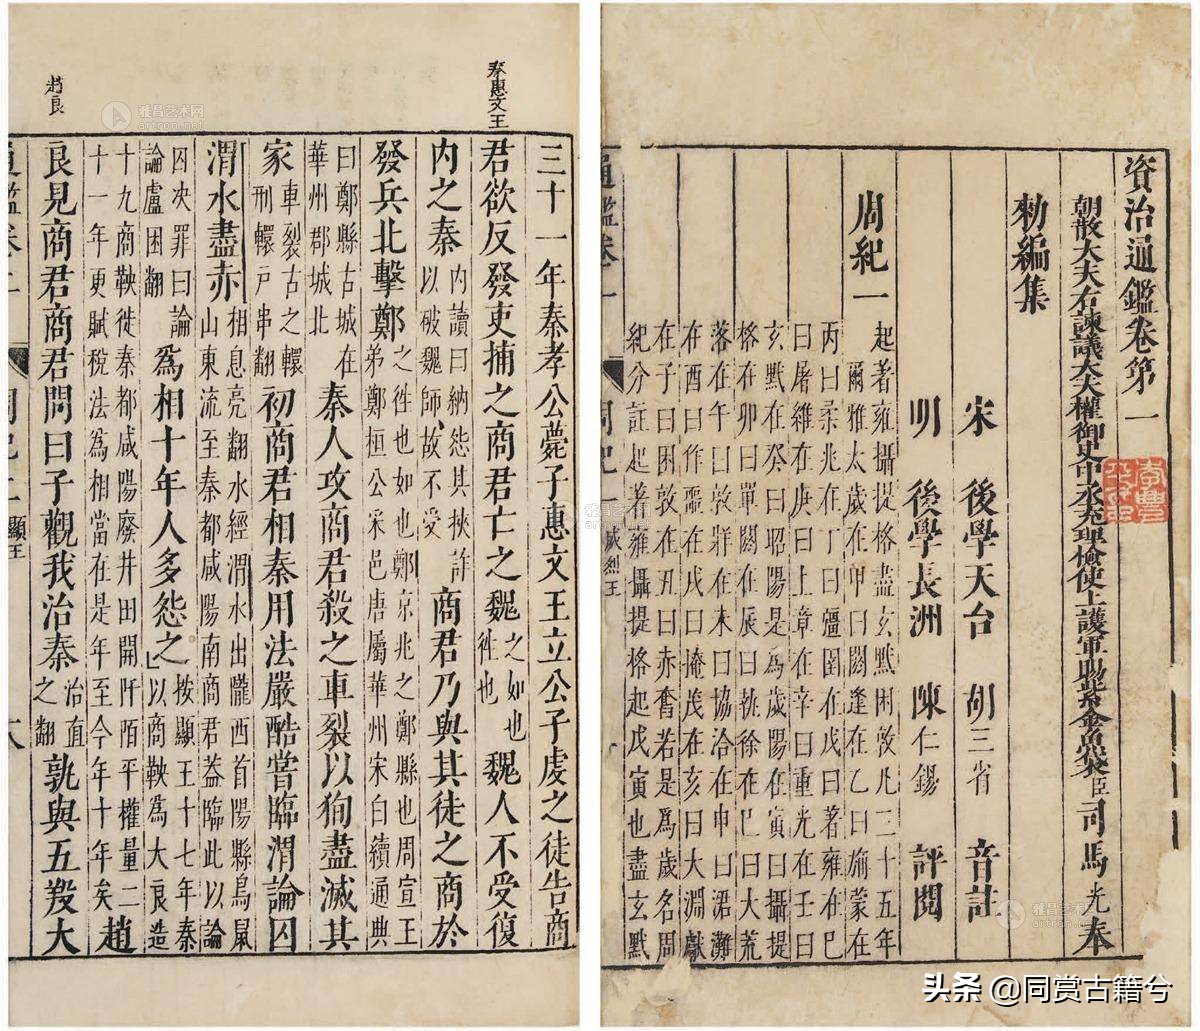 資治通鑑卷第一
朝散大夫右諫議大夫權御史中丞充理檢使上護軍賜紫金魚袋臣司馬光奉
勑編集
宋 後學天台 胡三省 音註
明 後學長洲 陳仁錫 評閱
周紀一 起著雍攝提格盡玄黓困敦凡三十五年
爾雅太歲在甲曰閼逢在乙曰旃蒙在
丙曰柔兆在丁曰彊圉在戊曰著雍在巳
曰屠維在庚曰上章在辛曰重光在壬曰
玄黓在癸曰昭陽是為歲陽在寅曰攝提
格在卯曰單閼在辰曰執徐在巳曰大荒
落在午曰敦牂在未曰協洽在申曰涒灘
在酉曰作噩在戌曰掩茂在亥曰大淵獻
在子曰困敦在丑曰赤奮若是爲歲名周
紀分註起著雍攝提格起戊寅也盡玄黓
通鑑卷一 周紀一 威烈王
秦惠文王
三十一年秦孝公薨子惠文王立公子虔之徒告商
君欲反發吏捕之商君亡之魏之如也往也魏人不受復
內之秦內讀曰納怨其挾詐以破魏師故不受商君乃與其徒之商於
發兵北擊鄭之往也如也鄭京兆之鄭縣也周宣王弟鄭桓公采邑唐屬華州宋白續通典
曰鄭縣古城在華州郡城北秦人攻商君殺之車裂以狥盡滅其
家車裂古之轘刑轘戶串翻初商君相秦用法嚴酷嘗臨渭論囚
渭水盡赤相息亮翻水經渭水出隴西首陽縣鳥鼠山東流至秦都咸陽南商君葢臨此以論
囚決罪曰論論盧困翻爲相十年人多怨之按顯王十七年秦以商鞅為大良造
十九商鞅徙秦都咸陽廢井田開阡陌平權量二十一年更賦稅法為相當在是年至今年十年矣趙
良見商君商君問曰子觀我治秦治直之翻孰與五羖大
趙良
通鑑卷二 周紀二 顯王 六
雅昌艺术网
artron.net
头条 @同赏古籍兮